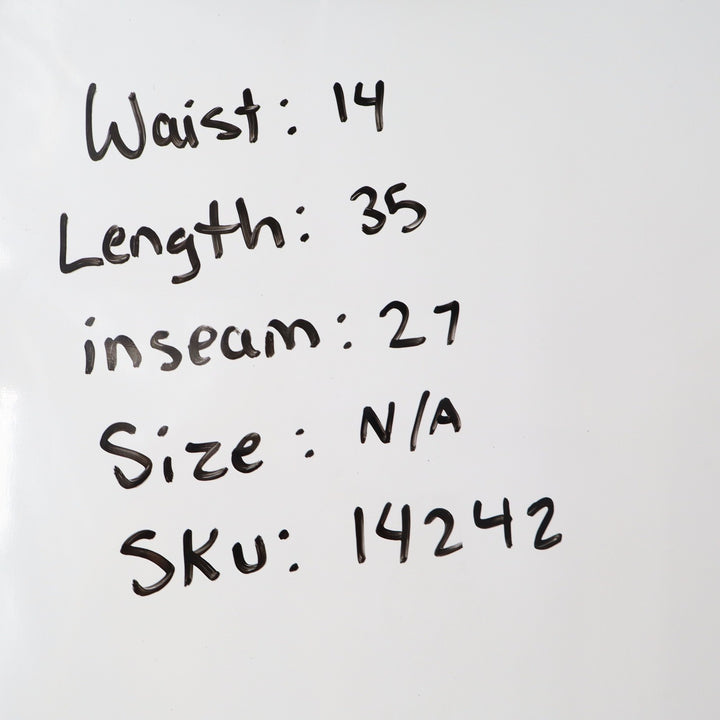 Waist: 14
Length: 35
inseam: 27
Size: N/A
SKU: 14242